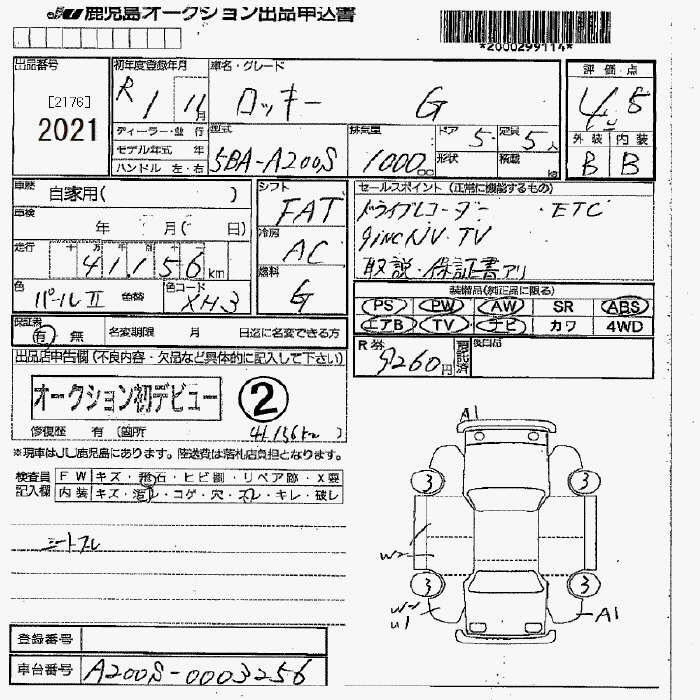 JU 鹿児島オークション出品申込書
*2000299114*
出品番号
[2176]
2021
初年度登録年月
R 1 11月
車名・グレード
ロッキー G
評価点
4.5
外装 内装
B B
ディーラー・並行
モデル年式 年
ハンドル 左・右
型式
5BA-A200S
排気量
1000cc
ドア
5
定員
5人
形状
積載
kg
車歴
自家用( )
車検
年 月( 日)
走行
十 万 千 百 十
41,156 km
色
パールⅡ 色替
色コード
XH3
シフト
FAT
冷房
AC
燃料
G
セールスポイント (正常に機能するもの)
ドライブレコーダー ・ETC
9incNV・TV
取説・保証書アリ
装備品(純正品に限る)
PS PW AW SR ABS
エアB TV ナビ カワ 4WD
保証書
有 無
名変期限 月 日迄に名変できる方
R券
9,260円
預託済
後日品
出品店申告欄(不良内容・欠品など具体的に記入して下さい)
オークション初デビュー ②
修復歴 有(箇所 )
41,156km
※現車はJU鹿児島にあります。陸送費は落札店負担となります。
検査員記入欄
FW キズ・飛石・ヒビ割・リペア跡・X要
内装 キズ・汚レ・コゲ・穴・スレ・キレ・破レ
シートスレ
A1
3 3
W2
3 3
W2
U1
A1
登録番号
車台番号 A200S-0003256